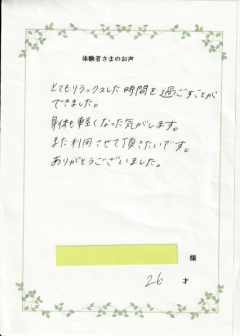 体験者さまのお声
とてもリラックスした時間を過ごすことが
できました。
身体も軽くなった気がします。
また利用させて頂きたいです。
ありがとうございました。
様
26 才